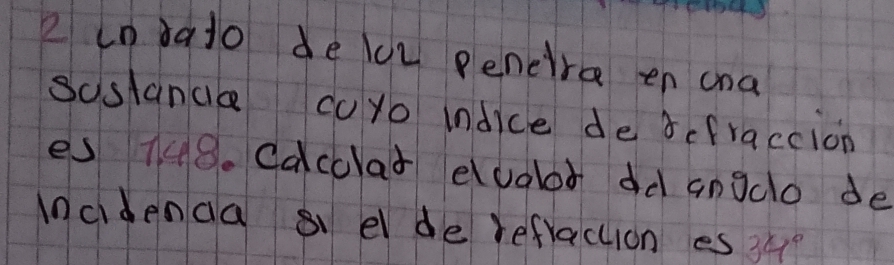 2 un rallo de luz penetra en una
sustancia cuyo indice de refraccion
es 1.48. Calcular el valor del angulo de
incidencia si el de refraccion es 34°